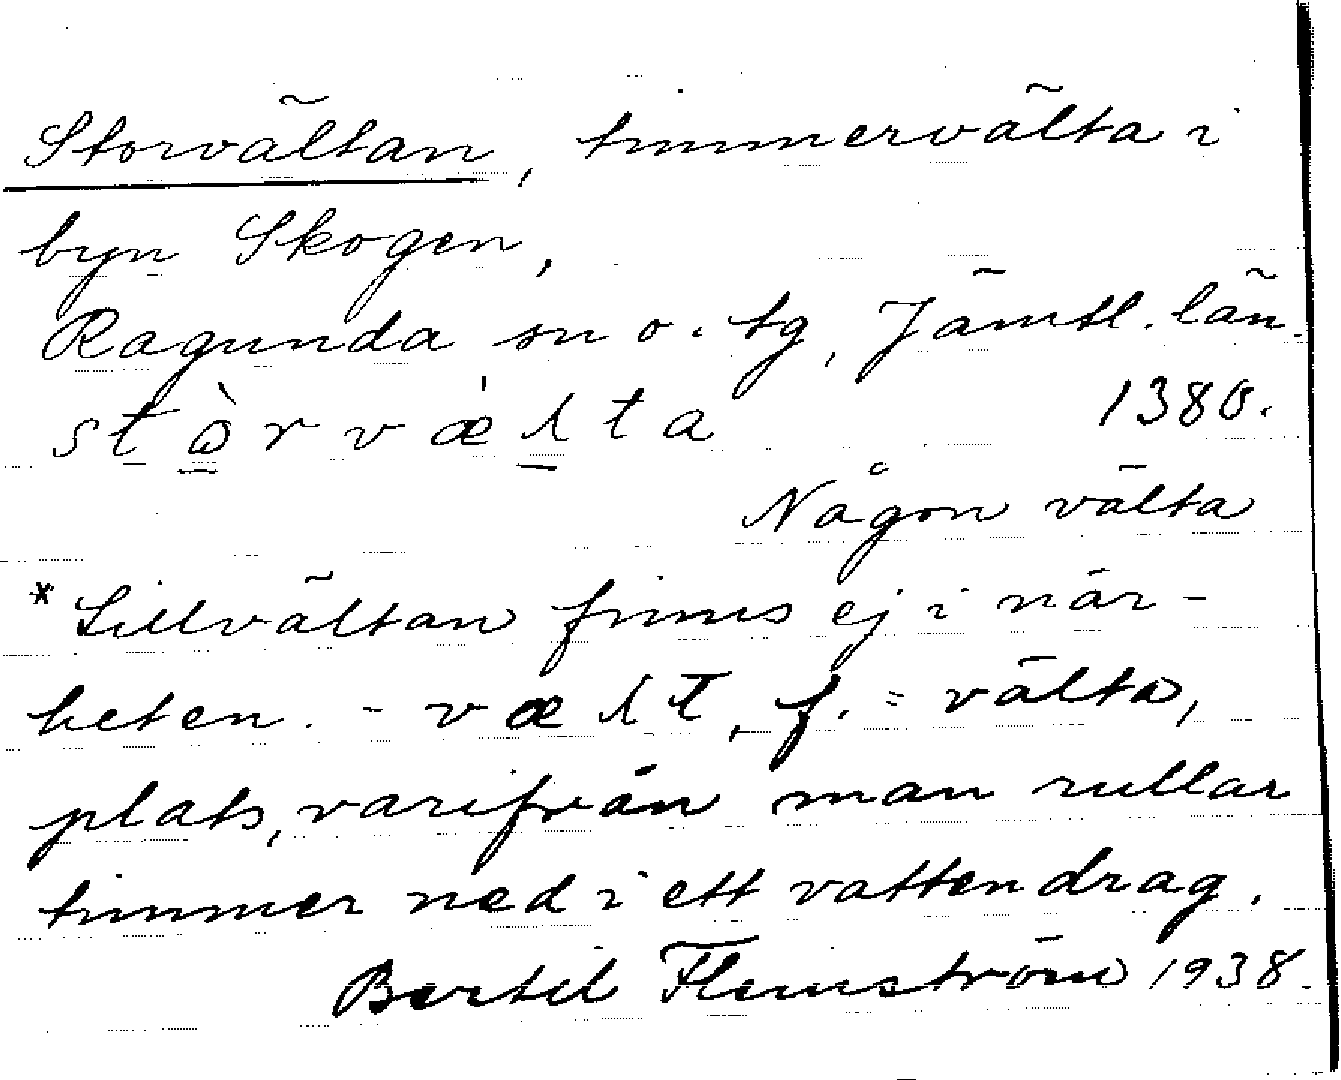 Storvältan, timmervälta i
byn Skogen,
Ragunda sn o. tg, Jämtl. län.
stòrvæʎta 1380.
Någon välta
*Lillvältan finns ej i när-
heten. - væʎt, f. = välta,
plats, varifrån man rullar
timmer ned i ett vattendrag.
Bertil Flemström 1938.